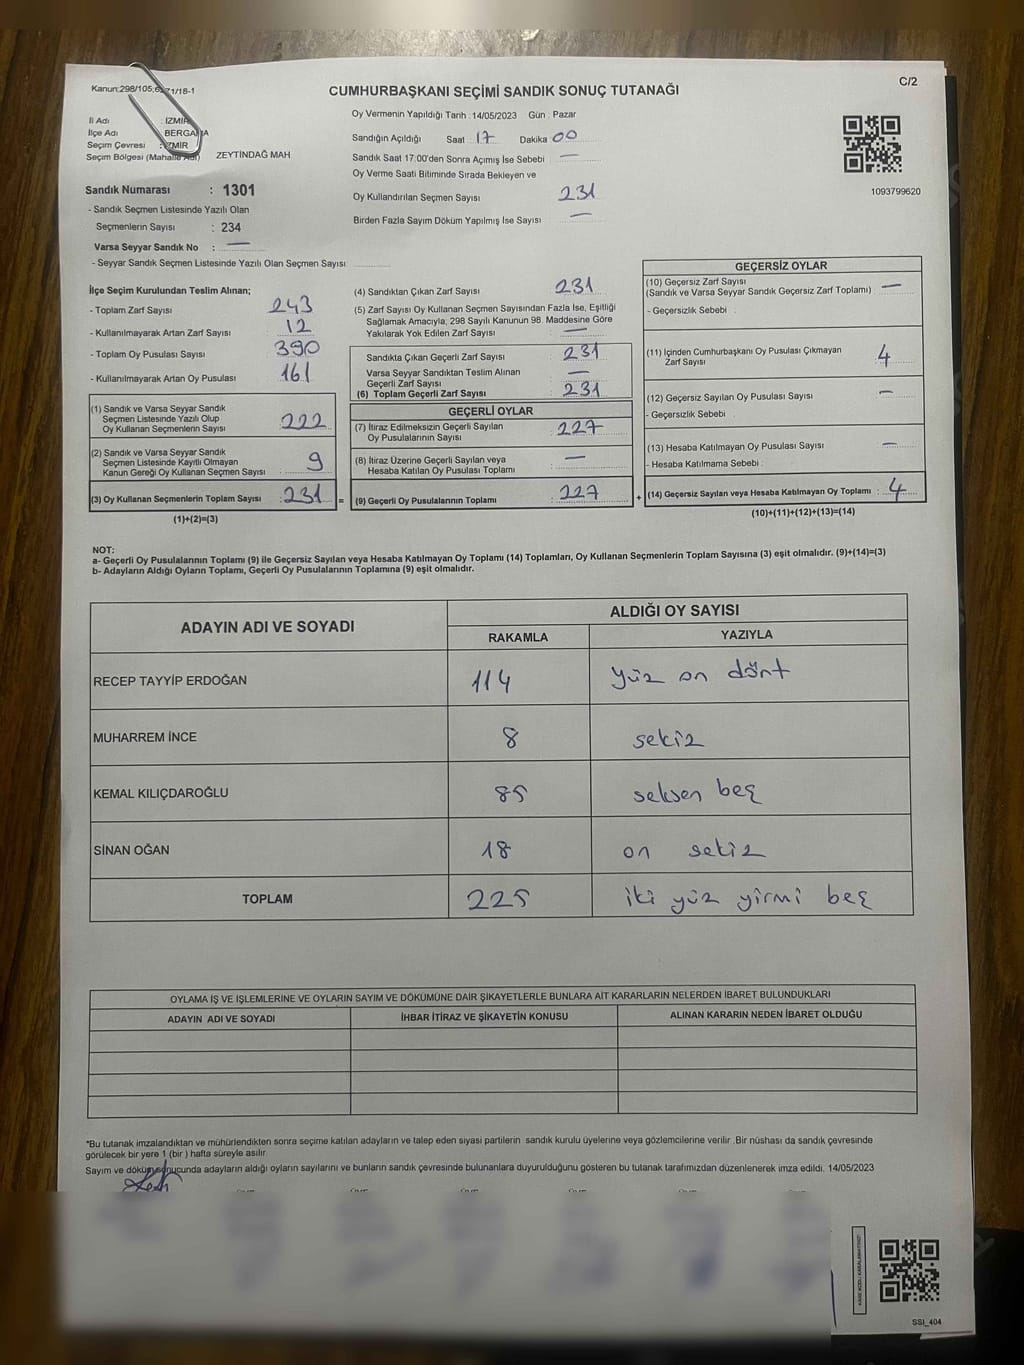 Kanun:298/105;6271/18-1
CUMHURBAŞKANI SEÇİMİ SANDIK SONUÇ TUTANAĞI
C/2
İl Adı : İZMİR
İlçe Adı : BERGAMA
Seçim Çevresi : İZMİR
Seçim Bölgesi (Mahalle Adı) ZEYTİNDAĞ MAH
Sandık Numarası : 1301
- Sandık Seçmen Listesinde Yazılı Olan
Seçmenlerin Sayısı : 234
Varsa Seyyar Sandık No : —
- Seyyar Sandık Seçmen Listesinde Yazılı Olan Seçmen Sayısı:
Oy Vermenin Yapıldığı Tarih : 14/05/2023 Gün : Pazar
Sandığın Açıldığı Saat 17 Dakika 00
Sandık Saat 17:00'den Sonra Açımış İse Sebebi —
Oy Verme Saati Bitiminde Sırada Bekleyen ve
Oy Kullandırılan Seçmen Sayısı 231
Birden Fazla Sayım Döküm Yapılmış İse Sayısı —
1093799620
İlçe Seçim Kurulundan Teslim Alınan;
- Toplam Zarf Sayısı 243
- Kullanılmayarak Artan Zarf Sayısı 12
- Toplam Oy Pusulası Sayısı 390
- Kullanılmayarak Artan Oy Pusulası 161
(1) Sandık ve Varsa Seyyar Sandık
Seçmen Listesinde Yazılı Olup
Oy Kullanan Seçmenlerin Sayısı 222
(2) Sandık ve Varsa Seyyar Sandık
Seçmen Listesinde Kayıtlı Olmayan
Kanun Gereği Oy Kullanan Seçmen Sayısı 9
(3) Oy Kullanan Seçmenlerin Toplam Sayısı 231 =
(1)+(2)=(3)
(4) Sandıktan Çıkan Zarf Sayısı 231
(5) Zarf Sayısı Oy Kullanan Seçmen Sayısından Fazla İse, Eşitliği
Sağlamak Amacıyla; 298 Sayılı Kanunun 98. Maddesine Göre
Yakılarak Yok Edilen Zarf Sayısı —
Sandıkta Çıkan Geçerli Zarf Sayısı 231
Varsa Seyyar Sandıktan Teslim Alınan
Geçerli Zarf Sayısı —
(6) Toplam Geçerli Zarf Sayısı 231
GEÇERLİ OYLAR
(7) İtiraz Edilmeksizin Geçerli Sayılan
Oy Pusulalarının Sayısı 227
(8) İtiraz Üzerine Geçerli Sayılan veya
Hesaba Katılan Oy Pusulası Toplamı —
(9) Geçerli Oy Pusulalarının Toplamı 227 +
GEÇERSİZ OYLAR
(10) Geçersiz Zarf Sayısı
(Sandık ve Varsa Seyyar Sandık Geçersiz Zarf Toplamı) —
- Geçersizlik Sebebi :
(11) İçinden Cumhurbaşkanı Oy Pusulası Çıkmayan
Zarf Sayısı 4
(12) Geçersiz Sayılan Oy Pusulası Sayısı —
- Geçersizlik Sebebi :
(13) Hesaba Katılmayan Oy Pusulası Sayısı —
- Hesaba Katılmama Sebebi :
(14) Geçersiz Sayılan veya Hesaba Katılmayan Oy Toplamı : 4
(10)+(11)+(12)+(13)=(14)
NOT:
a- Geçerli Oy Pusulalarının Toplamı (9) ile Geçersiz Sayılan veya Hesaba Katılmayan Oy Toplamı (14) Toplamları, Oy Kullanan Seçmenlerin Toplam Sayısına (3) eşit olmalıdır. (9)+(14)=(3)
b- Adayların Aldığı Oyların Toplamı, Geçerli Oy Pusulalarının Toplamına (9) eşit olmalıdır.
ADAYIN ADI VE SOYADI
ALDIĞI OY SAYISI
RAKAMLA YAZIYLA
RECEP TAYYİP ERDOĞAN 114 yüz on dört
MUHARREM İNCE 8 sekiz
KEMAL KILIÇDAROĞLU 85 seksen beş
SİNAN OĞAN 18 on sekiz
TOPLAM 225 iki yüz yirmi beş
OYLAMA İŞ VE İŞLEMLERİNE VE OYLARIN SAYIM VE DÖKÜMÜNE DAİR ŞİKAYETLERLE BUNLARA AİT KARARLARIN NELERDEN İBARET BULUNDUKLARI
ADAYIN ADI VE SOYADI İHBAR İTİRAZ VE ŞİKAYETİN KONUSU ALINAN KARARIN NEDEN İBARET OLDUĞU
*Bu tutanak imzalandıktan ve mühürlendikten sonra seçime katılan adayların ve talep eden siyasi partilerin sandık kurulu üyelerine veya gözlemcilerine verilir .Bir nüshası da sandık çevresinde
görülecek bir yere 1 (bir ) hafta süreyle asılır.
Sayım ve döküm sonucunda adayların aldığı oyların sayılarını ve bunların sandık çevresinde bulunanlara duyurulduğunu gösteren bu tutanak tarafımızdan düzenlenerek imza edildi. 14/05/2023
KARE KODU KARALAMAYINIZ!
SSI_404